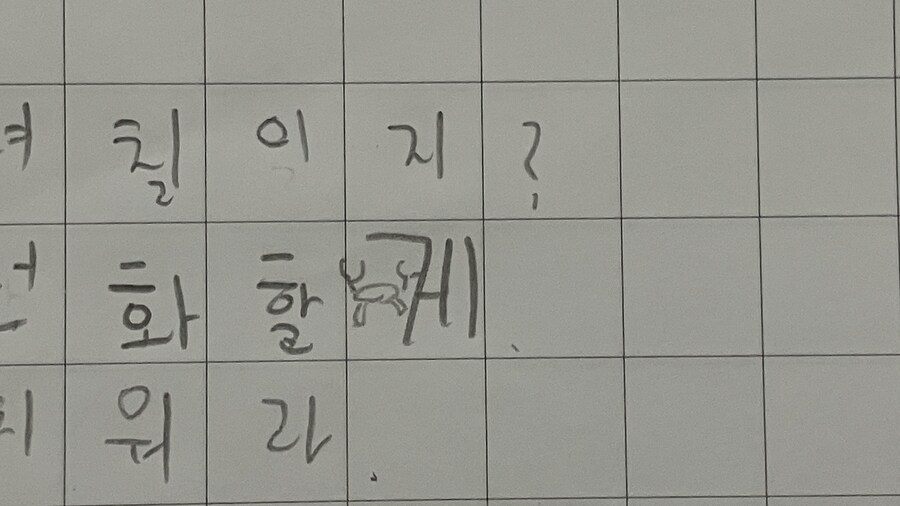 칠이지?
화할게.
워라.